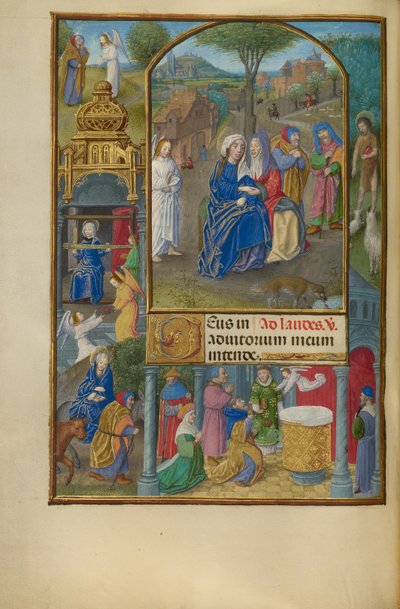 Deus in Ad laudes. V.
Adiutorium meum
intende.